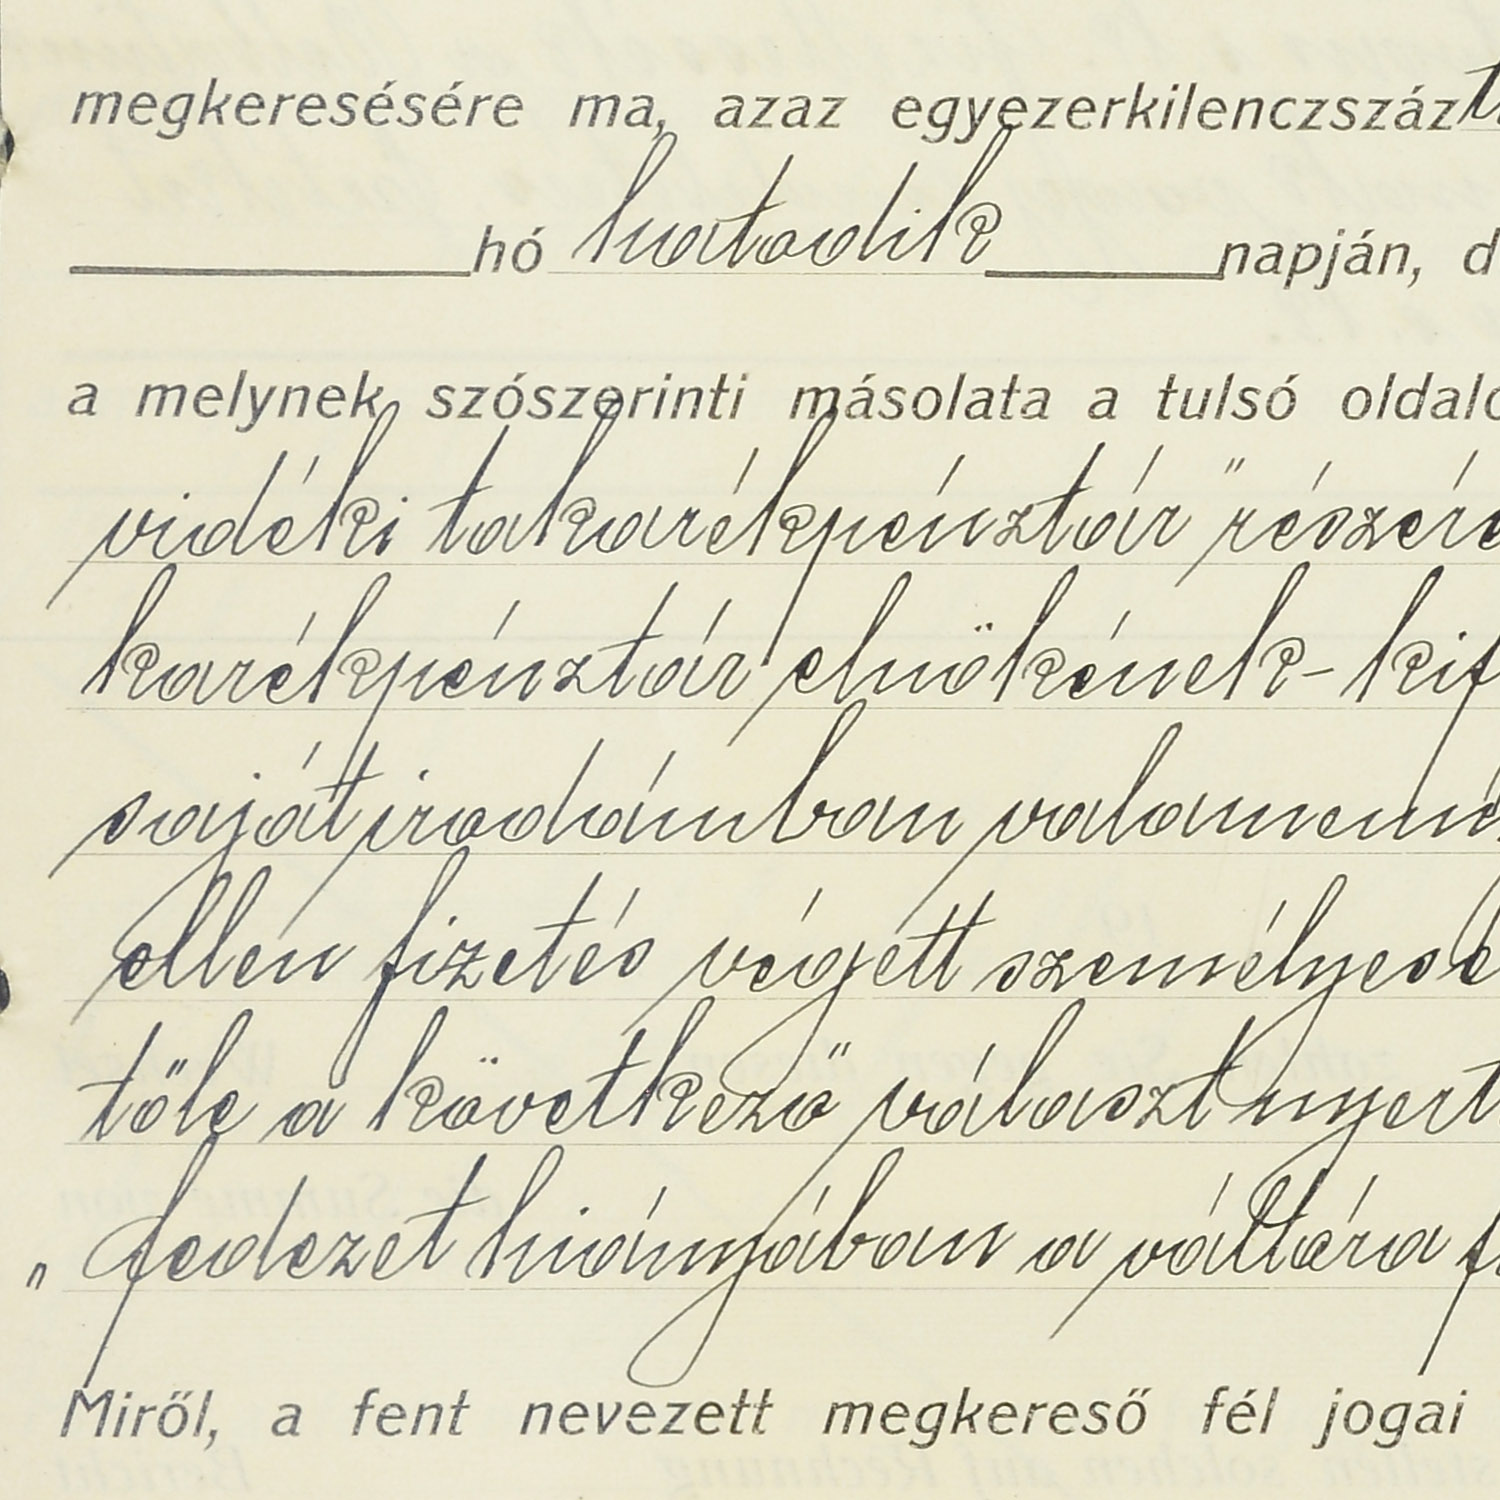 megkeresésére ma, azaz egyezerkilenczszáz
hó hatodik napján, d
a melynek szószerinti másolata a tulsó oldalo
vidéki takarékpénztár" részére
karékpénztár elnökének - kif
saját irodámban valamenn
ellen fizetés végett személyese
tőle a következő választ nyert
„fedezet hiányában a váltóra f
Miről, a fent nevezett megkereső fél jogai